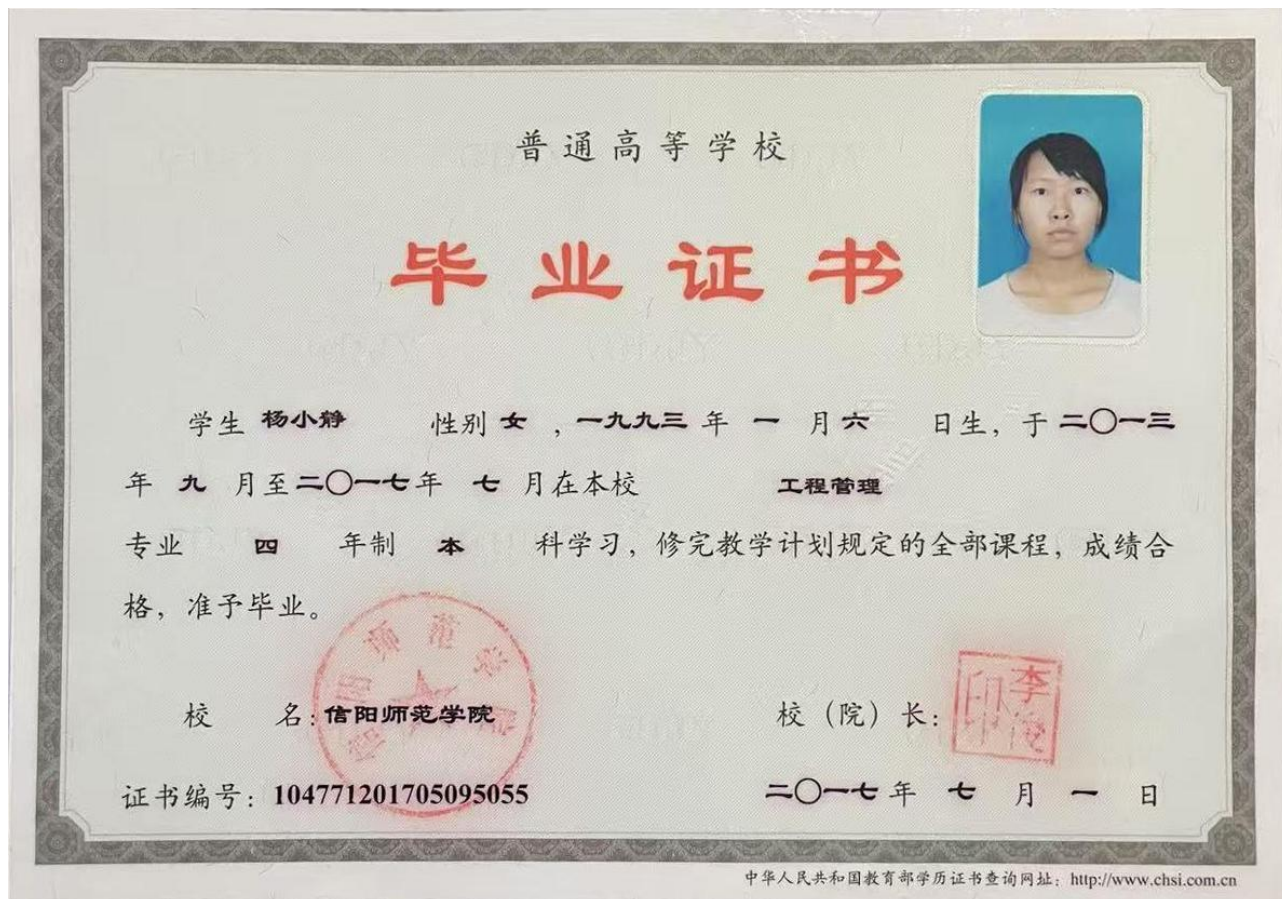 普通高等学校
毕业证书
学生 杨小静 性别 女 ，一九九三 年 一 月 六 日生，于 二〇一三
年 九 月至 二〇一七 年 七 月在本校 工程管理
专业 四 年制 本 科学习，修完教学计划规定的全部课程，成绩合
格，准予毕业。
信阳师范学院
校 名：信阳师范学院 校（院）长：
证书编号：104771201705095055 二〇一七 年 七 月 一 日
中华人民共和国教育部学历证书查询网址：http://www.chsi.com.cn